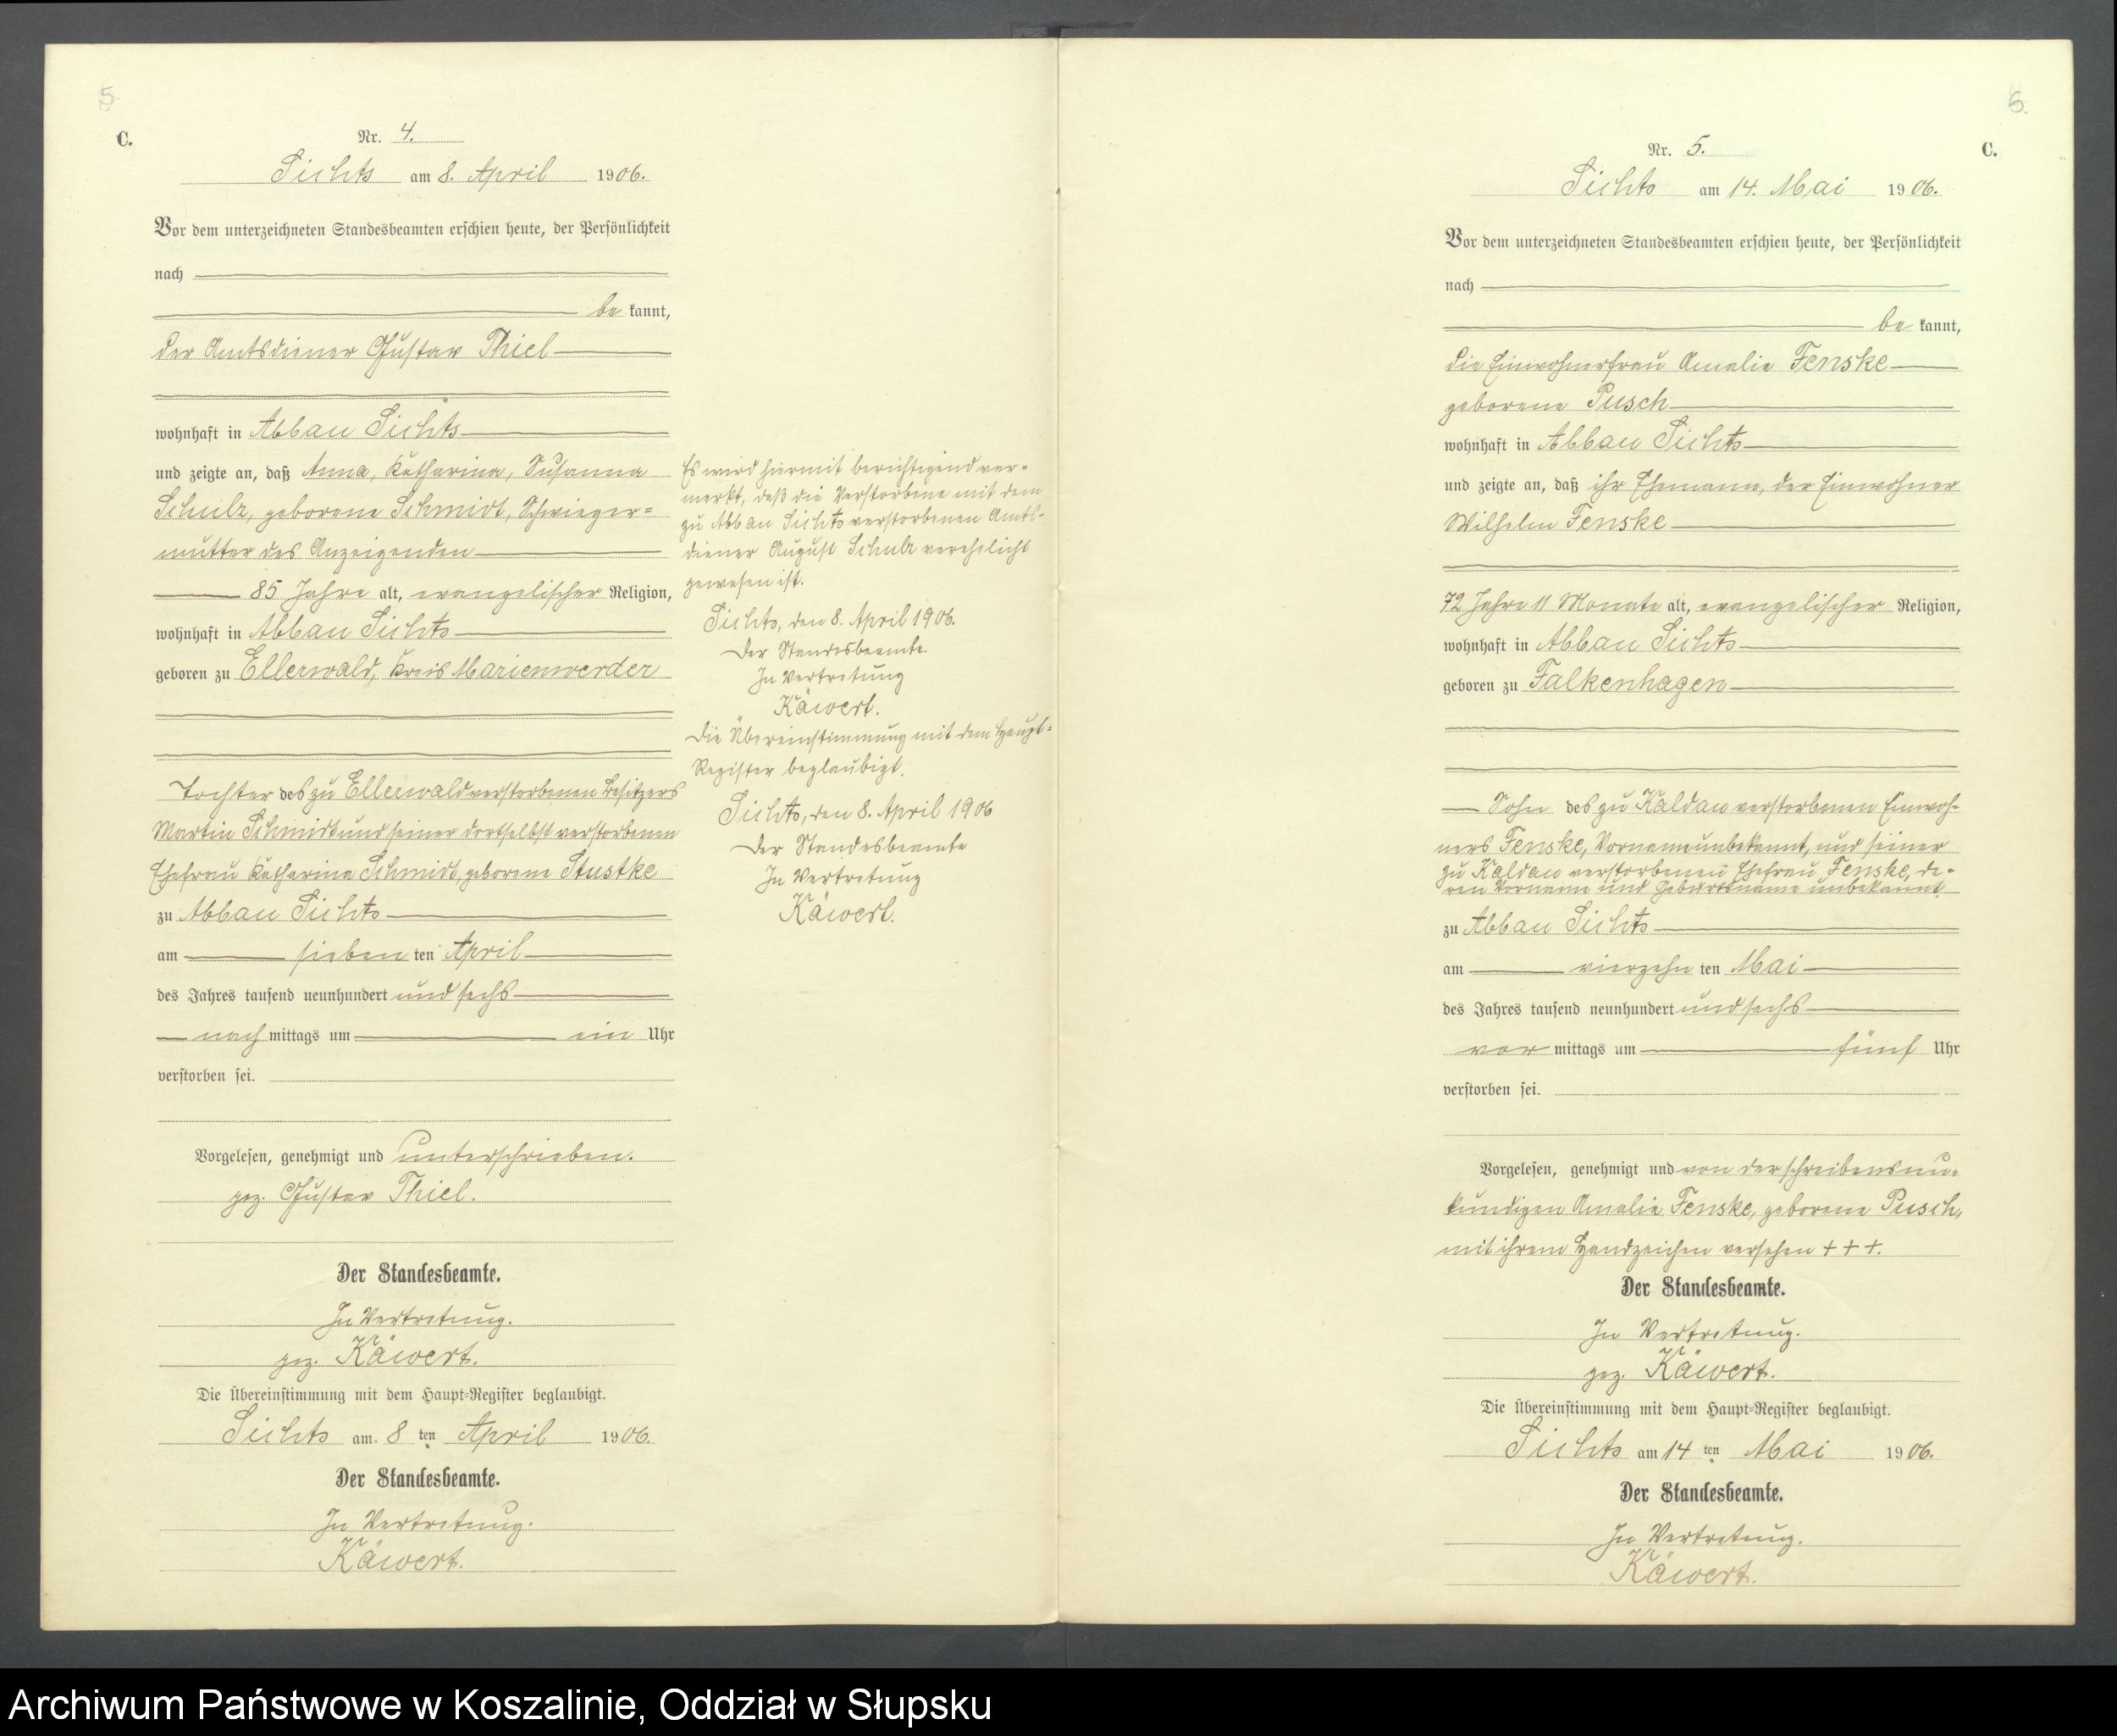 5.
C.
Nr. 4.
Sichts am 8. April 1906.
Vor dem unterzeichneten Standesbeamten erschien heute, der Persönlichkeit
nach
be kannt,
der Amtsdiener Gustav Thiel
wohnhaft in Abbau Sichts
und zeigte an, daß Anna, Katharina, Susanna
Schulz, geborene Schmidt, Schwieger=
mutter des Anzeigenden
85 Jahre alt, evangelischer Religion,
wohnhaft in Abbau Sichts
geboren zu Ellerwald, Kreis Marienwerder
Tochter des zu Ellerwald verstorbenen Besitzers
Martin Schmidt und seiner dortselbst verstorbenen
Ehefrau Katharina Schmidt, geborene Stustke
zu Abbau Sichts
am sieben ten April
des Jahres tausend neunhundert und sechs
nach mittags um ein Uhr
verstorben sei.
Vorgelesen, genehmigt und unterschrieben.
gez. Gustav Thiel.
Der Standesbeamte.
In Vertretung.
gez. Käwert.
Die Übereinstimmung mit dem Haupt=Register beglaubigt.
Sichts am 8 ten April 1906.
Der Standesbeamte.
In Vertretung.
Käwert.
Es wird hiermit berichtigend ver=
merkt, daß die Verstorbene mit dem
zu Abbau Sichts verstorbenen Amts-
diener August Schulz verehelicht
gewesen ist.
Sichts, den 8. April 1906.
Der Standesbeamte.
In Vertretung
Käwert.
Die Übereinstimmung mit dem Haupt=
Register beglaubigt.
Sichts, den 8. April 1906
Der Standesbeamte
In Vertretung
Käwert.
6.
Nr. 5.
C.
Sichts am 14. Mai 1906.
Vor dem unterzeichneten Standesbeamten erschien heute, der Persönlichkeit
nach
be kannt,
die Einwohnerfrau Amalie Fenske
geborene Pusch
wohnhaft in Abbau Sichts
und zeigte an, daß ihr Ehemann, der Einwohner
Wilhelm Fenske
72 Jahre 11 Monate alt, evangelischer Religion,
wohnhaft in Abbau Sichts
geboren zu Falkenhagen
Sohn des zu Kaldau verstorbenen Einwoh-
ners Fenske, Vorname unbekannt, und seiner
zu Kaldau verstorbenen Ehefrau Fenske, de-
ren Vorname und Geburtsname unbekannt
zu Abbau Sichts
am vierzehn ten Mai
des Jahres tausend neunhundert und sechs
vor mittags um fünf Uhr
verstorben sei.
Vorgelesen, genehmigt und von der schreibensun=
kundigen Amalie Fenske, geborene Pusch,
mit ihrem Handzeichen versehen + + +.
Der Standesbeamte.
In Vertretung.
gez. Käwert.
Die Übereinstimmung mit dem Haupt=Register beglaubigt.
Sichts am 14 ten Mai 1906.
Der Standesbeamte.
In Vertretung.
Käwert.
Archiwum Państwowe w Koszalinie, Oddział w Słupsku